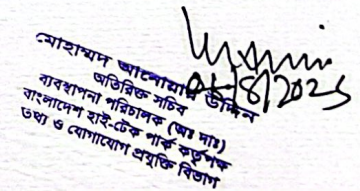 মোহাম্মদ আনোয়ার উদ্দিন
অতিরিক্ত সচিব
ব্যবস্থাপনা পরিচালক (অঃ দাঃ)
বাংলাদেশ হাই-টেক পার্ক কর্তৃপক্ষ
তথ্য ও যোগাযোগ প্রযুক্তি বিভাগ